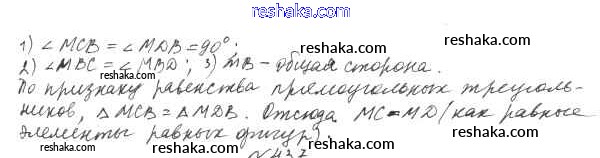 reshaka.com
1) ∠MCB = ∠MDB = 90°;
reshaka.com
2) ∠MBC = ∠MBD; 3) MB – общая сторона.
По признаку равенства прямоугольных треуголь-
ников, △MCB = △MDB. Отсюда MC = MD (как равные
reshaka.com reshaka.com reshaka.com
элементы равных фигур).
№437
reshaka.com